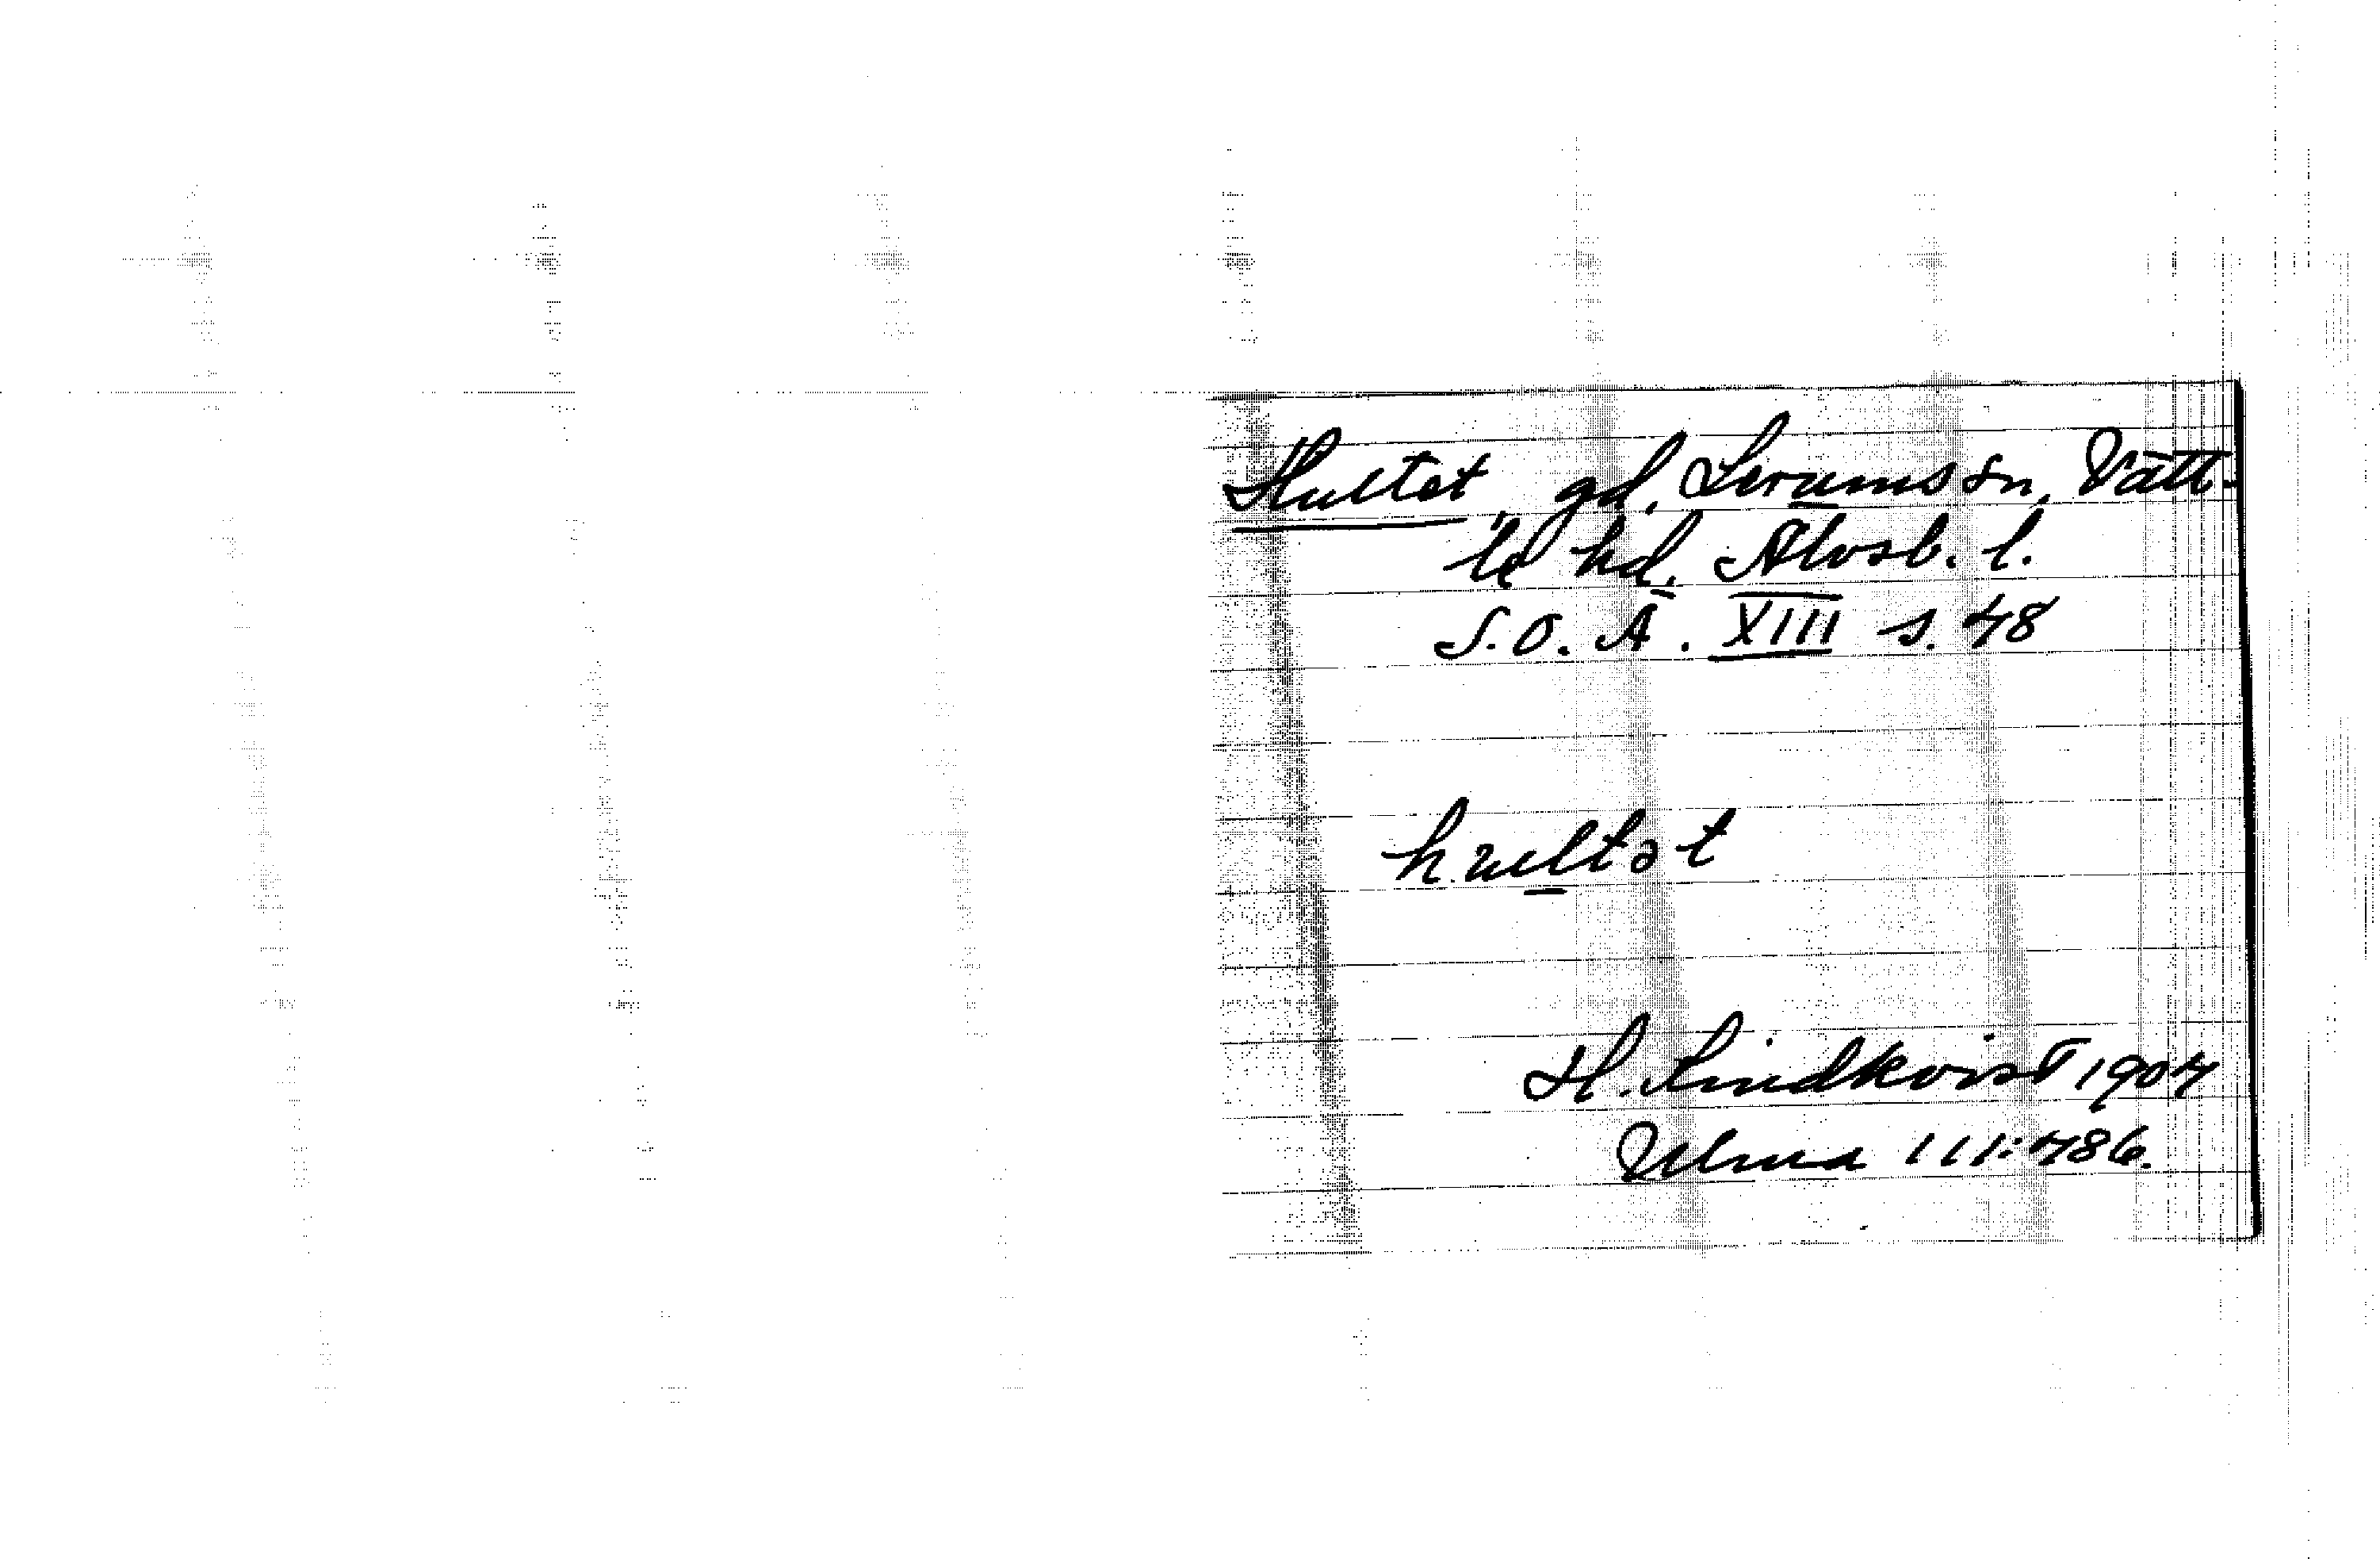 Hultet, gd, Lerums sn, Vätt-
le hd. Älvsb. l.
S.O.Ä. XIII s. 48
h.ultət
H. Lindkvist 1904
Ulma 111:486.